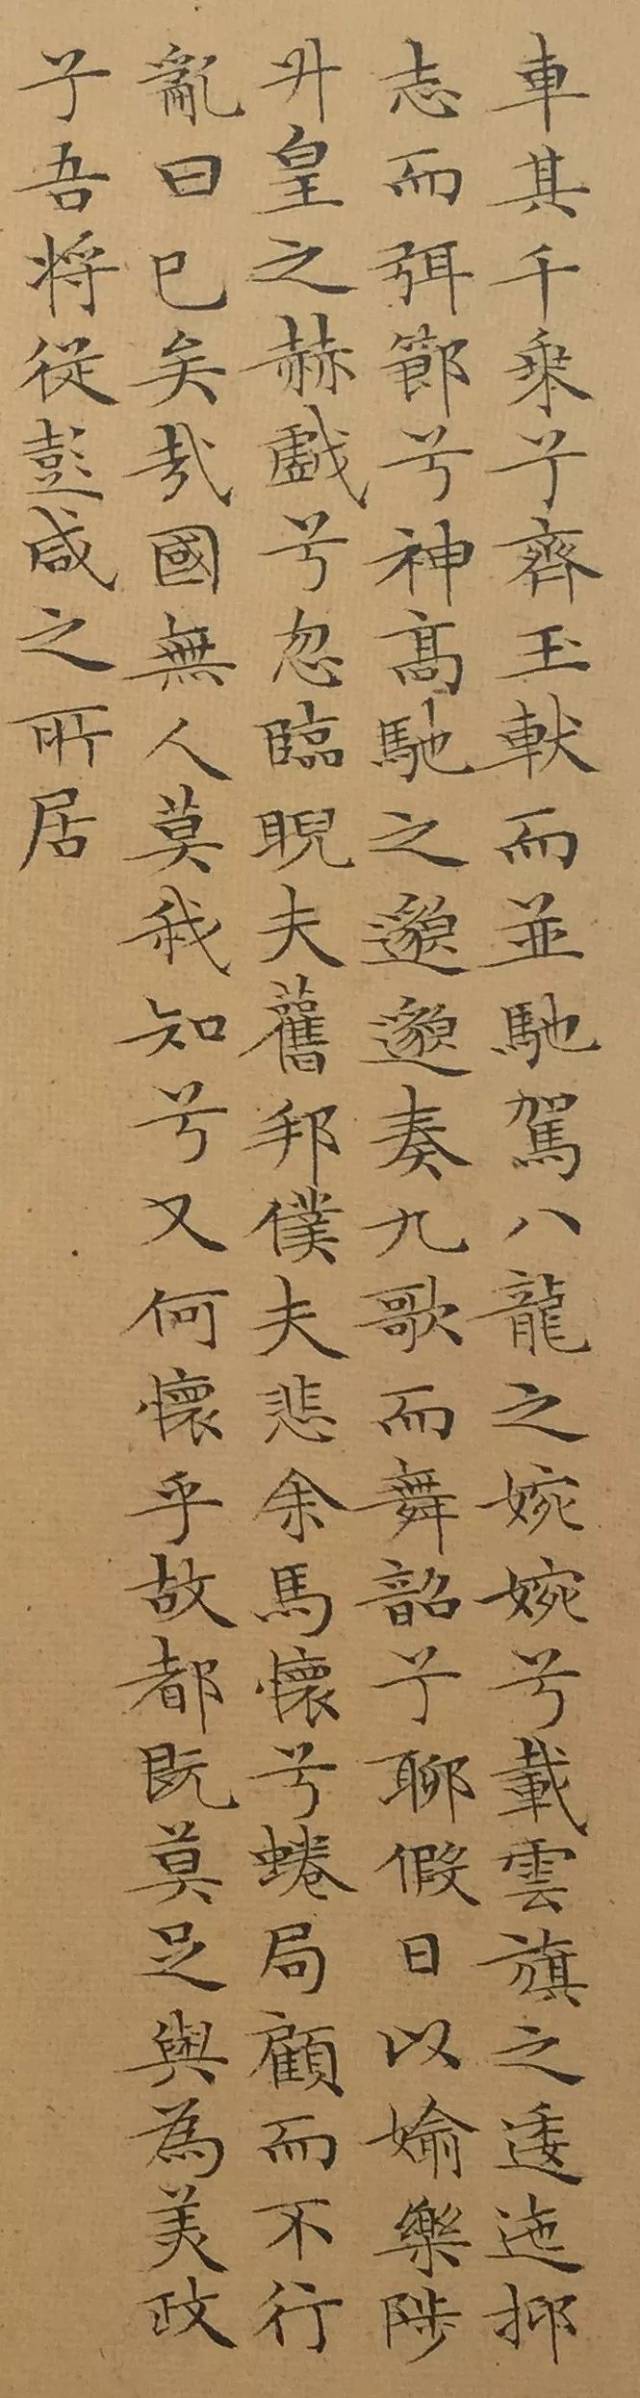 車其千乘兮齊玉軑而並馳駕八龍之婉婉兮載雲旗之逶迤抑
志而弭節兮神高馳之邈邈奏九歌而舞韶兮聊假日以媮樂陟
升皇之赫戲兮忽臨睨夫舊邦僕夫悲余馬懷兮蜷局顧而不行
亂曰已矣哉國無人莫我知兮又何懷乎故都既莫足與為美政
兮吾將從彭咸之所居